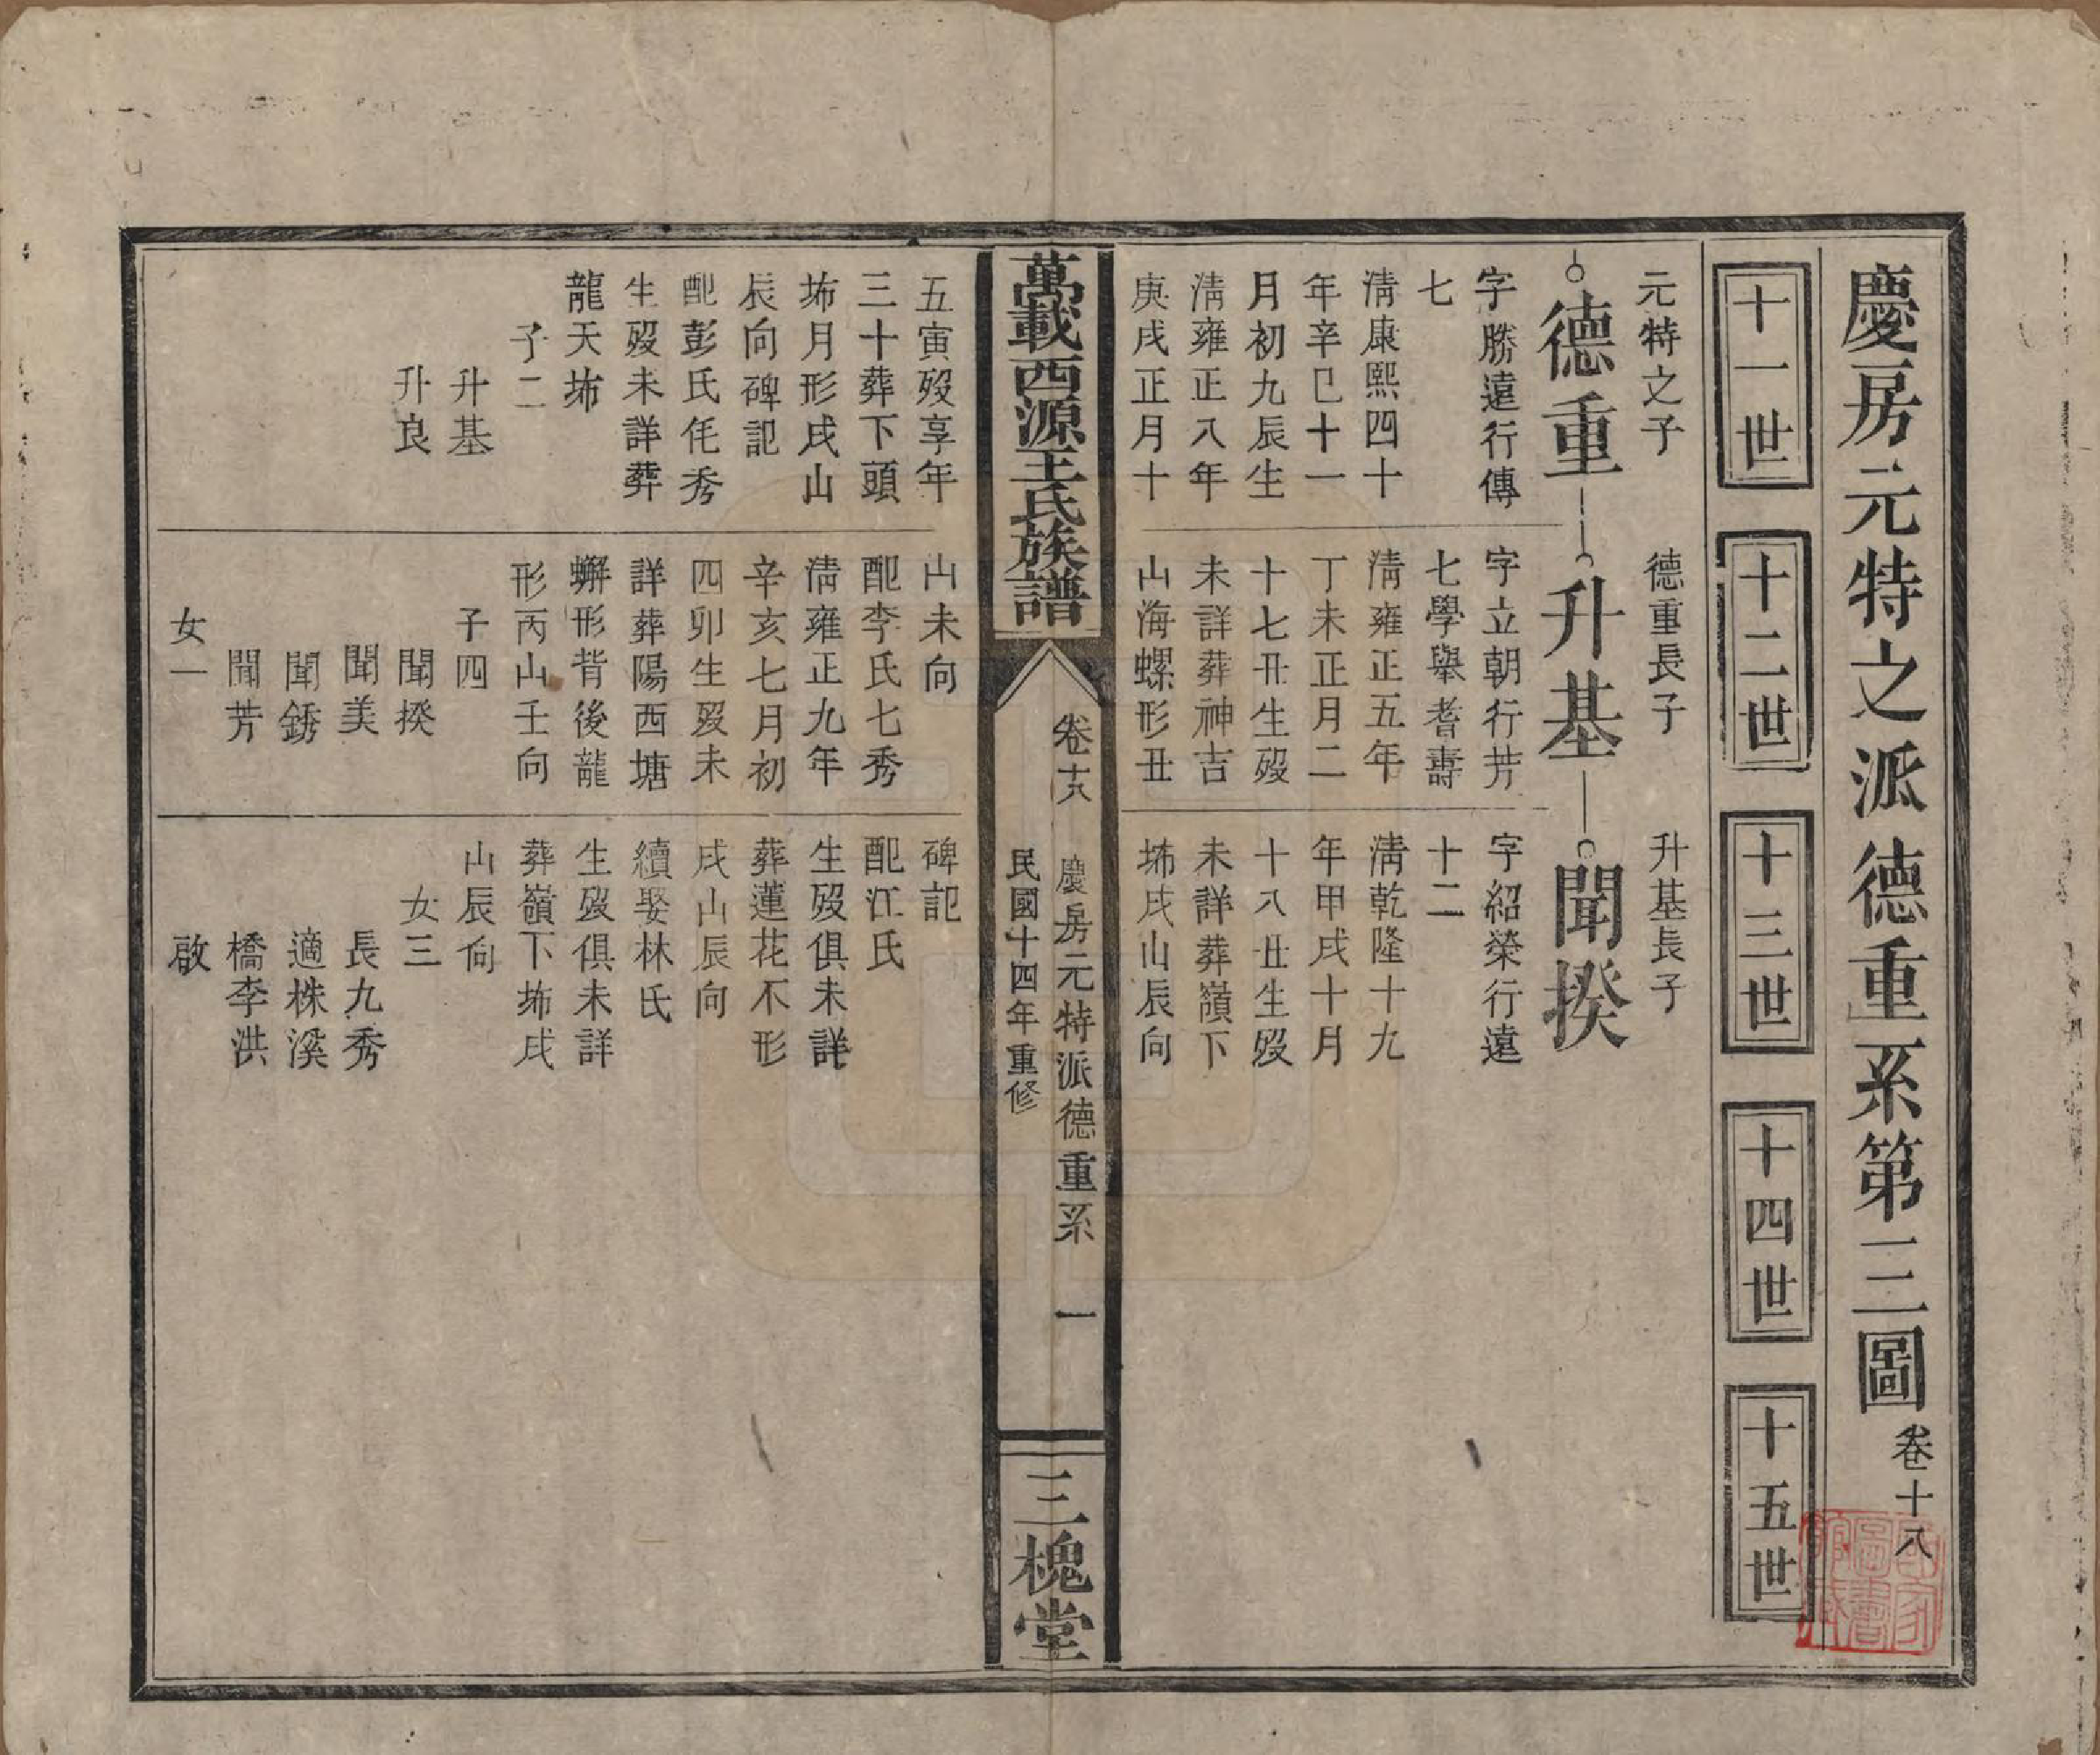 慶房元特之派德重系第三圖 卷十八
十一世
十二世
十三世
十四世
十五世
元特之子
德重
字勝遠行傳
七
清康熙四十
年辛巳十一
月初九辰生
清雍正八年
庚戌正月十
五寅歿享年
三十葬下頭
㘵月形戌山
辰向碑記
配彭氏毛秀
生歿未詳葬
龍天㘵
子二
升基
升良
德重長子
升基
字立朝行芳
七學舉耆壽
清雍正五年
丁未正月二
十七丑生歿
未詳葬神吉
山海螺形丑
山未向
配李氏七秀
清雍正九年
辛亥七月初
四卯生歿未
詳葬陽西塘
蠏形背後龍
形丙山壬向
子四
聞揆
聞美
聞銹
聞芳
女一
升基長子
聞揆
字紹榮行遠
十二
清乾隆十九
年甲戌十月
十八丑生歿
未詳葬嶺下
㘵戌山辰向
碑記
配江氏
生歿俱未詳
葬蓮花不形
戌山辰向
續娶林氏
生歿俱未詳
葬嶺下㘵戌
山辰向
女三
長九秀
適株溪
橋李洪
啟
萬載西源王氏族譜
卷十八
慶房元特派德重系 一
民國十四年重修
三槐堂
國家圖書館藏